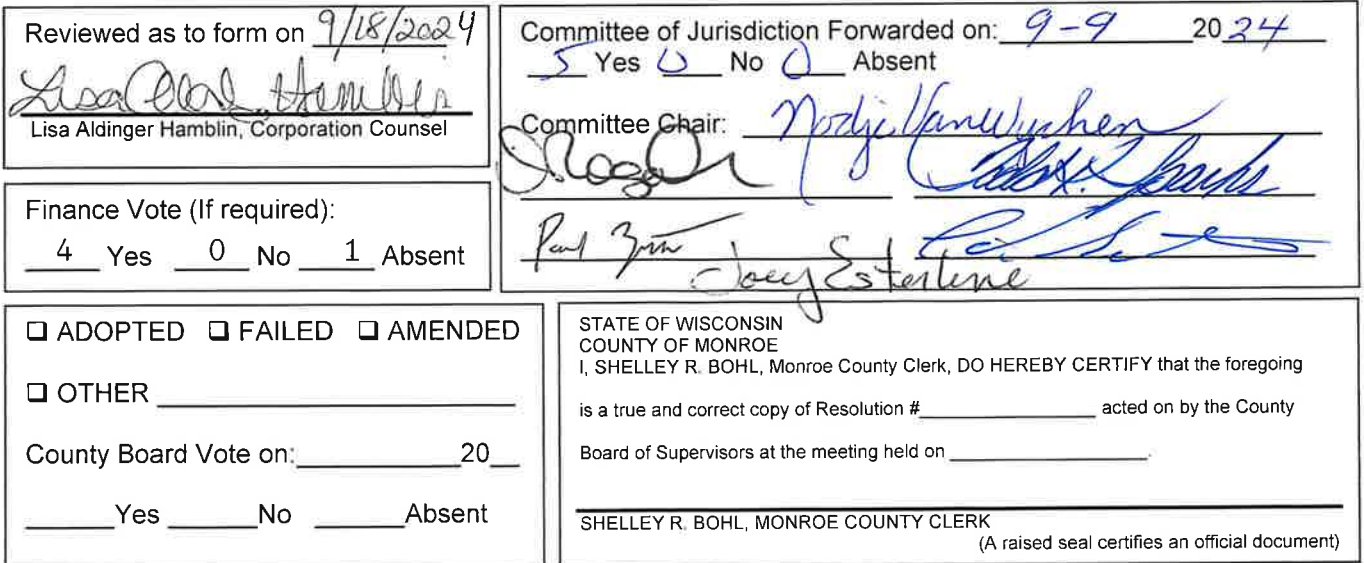 Reviewed as to form on 9/18/2024
Lisa Aldinger Hamblin, Corporation Counsel
Finance Vote (If required):
4 Yes 0 No 1 Absent
Committee of Jurisdiction Forwarded on: 9-9 2024
5 Yes 0 No 0 Absent
Committee Chair: Nodji VanWychen
Paul
Joey Esterline
❑ ADOPTED ❑ FAILED ❑ AMENDED
❑ OTHER
County Board Vote on: 20
Yes No Absent
STATE OF WISCONSIN
COUNTY OF MONROE
I, SHELLEY R. BOHL, Monroe County Clerk, DO HEREBY CERTIFY that the foregoing
is a true and correct copy of Resolution # acted on by the County
Board of Supervisors at the meeting held on .
SHELLEY R. BOHL, MONROE COUNTY CLERK
(A raised seal certifies an official document)